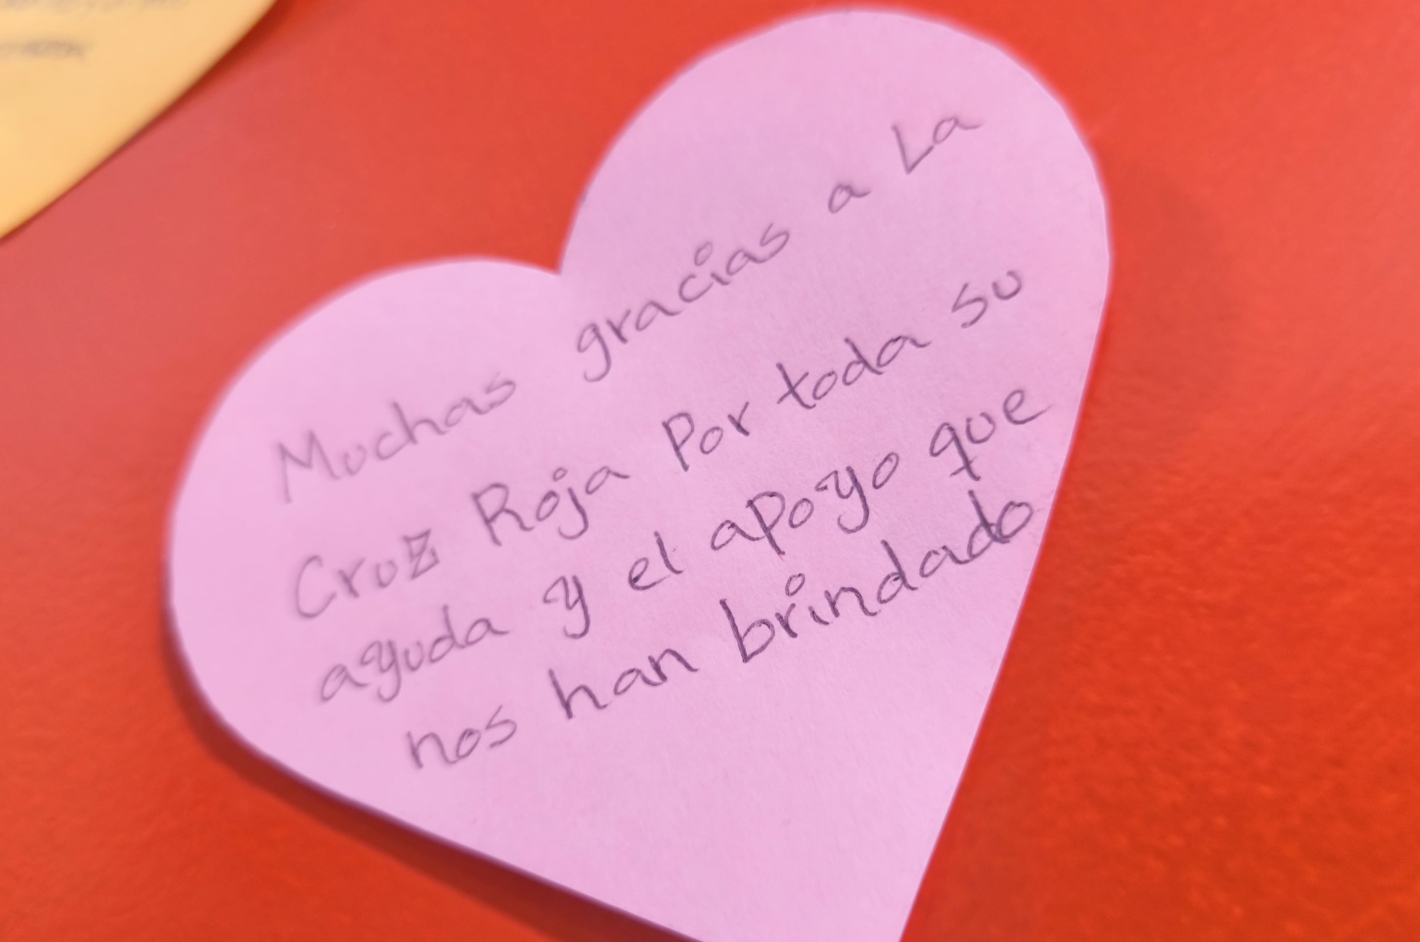 Muchas gracias a La
Cruz Roja Por toda su
ayuda y el apoyo que
nos han brindado